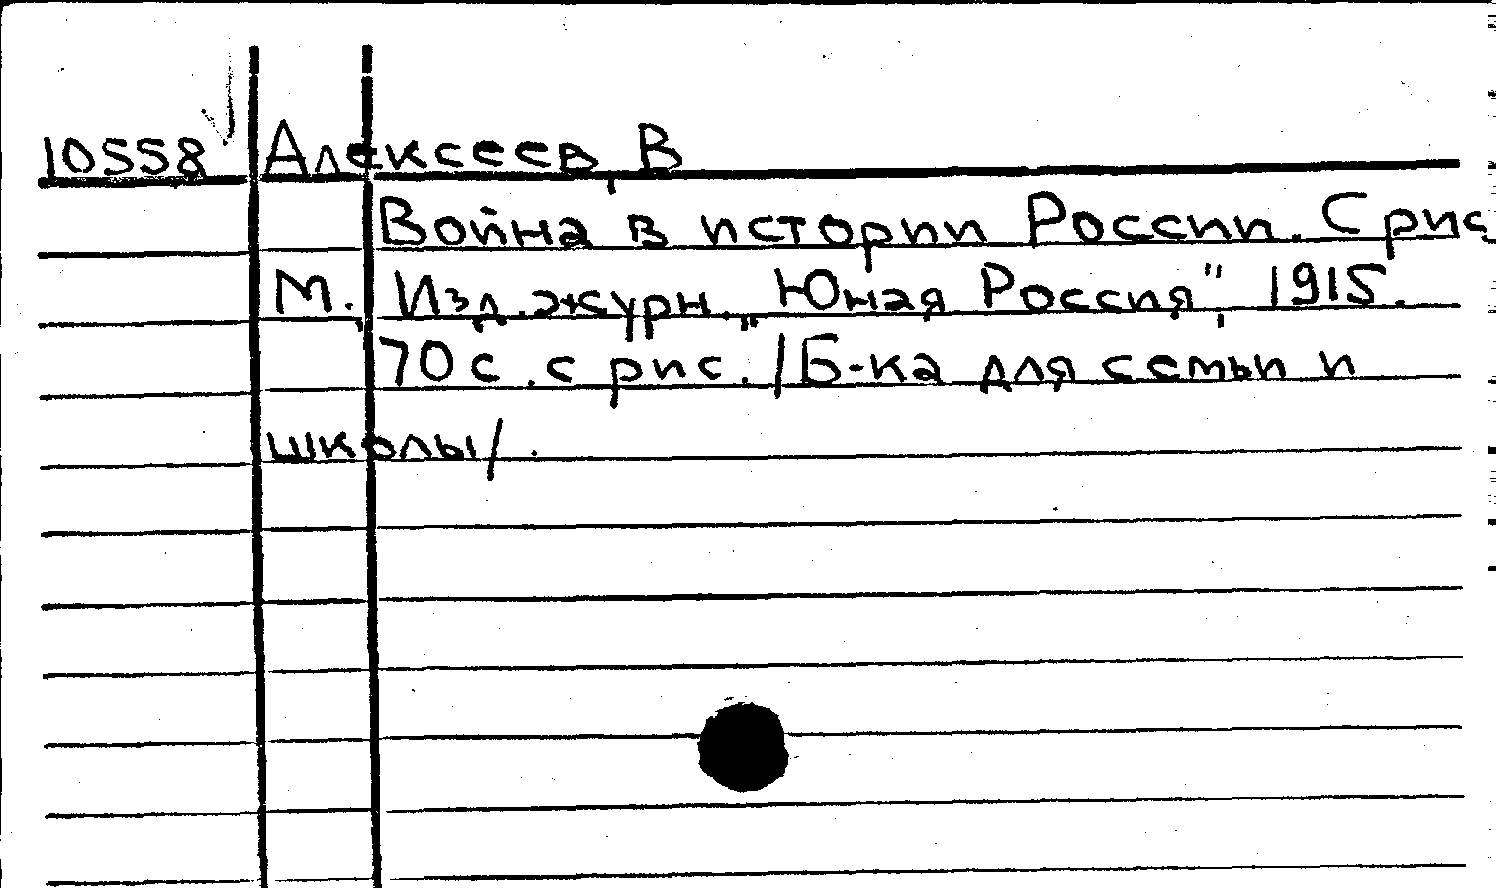 10558 Алексеев, В
Война в истории России. С рис.
М., Изд. журн. „Юная Россия", 1915.
70 с. с рис. /Б-ка для семьи и
школы/.